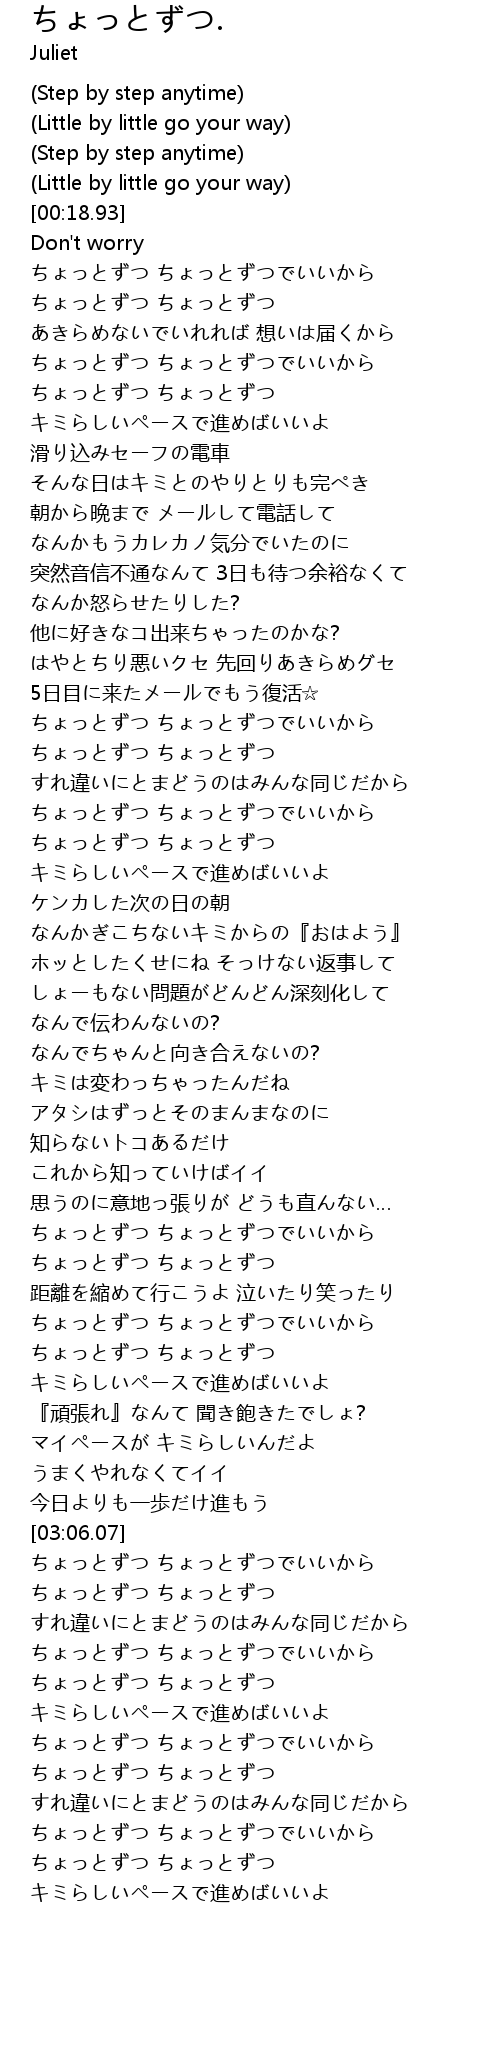 ちょっとずつ.
Juliet
(Step by step anytime)
(Little by little go your way)
(Step by step anytime)
(Little by little go your way)
[00:18.93]
Don't worry
ちょっとずつ ちょっとずつでいいから
ちょっとずつ ちょっとずつ
あきらめないでいれれば 想いは届くから
ちょっとずつ ちょっとずつでいいから
ちょっとずつ ちょっとずつ
キミらしいペースで進めばいいよ
滑り込みセーフの電車
そんな日はキミとのやりとりも完ぺき
朝から晩まで メールして電話して
なんかもうカレカノ気分でいたのに
突然音信不通なんて 3日も待つ余裕なくて
なんか怒らせたりした?
他に好きなコ出来ちゃったのかな?
はやとちり悪いクセ 先回りあきらめグセ
5日目に来たメールでもう復活☆
ちょっとずつ ちょっとずつでいいから
ちょっとずつ ちょっとずつ
すれ違いにとまどうのはみんな同じだから
ちょっとずつ ちょっとずつでいいから
ちょっとずつ ちょっとずつ
キミらしいペースで進めばいいよ
ケンカした次の日の朝
なんかぎこちないキミからの『おはよう』
ホッとしたくせにね そっけない返事して
しょーもない問題がどんどん深刻化して
なんで伝わんないの?
なんでちゃんと向き合えないの?
キミは変わっちゃったんだね
アタシはずっとそのまんまなのに
知らないトコあるだけ
これから知っていけばイイ
思うのに意地っ張りが どうも直んない...
ちょっとずつ ちょっとずつでいいから
ちょっとずつ ちょっとずつ
距離を縮めて行こうよ 泣いたり笑ったり
ちょっとずつ ちょっとずつでいいから
ちょっとずつ ちょっとずつ
キミらしいペースで進めばいいよ
『頑張れ』なんて 聞き飽きたでしょ?
マイペースが キミらしいんだよ
うまくやれなくてイイ
今日よりも一歩だけ進もう
[03:06.07]
ちょっとずつ ちょっとずつでいいから
ちょっとずつ ちょっとずつ
すれ違いにとまどうのはみんな同じだから
ちょっとずつ ちょっとずつでいいから
ちょっとずつ ちょっとずつ
キミらしいペースで進めばいいよ
ちょっとずつ ちょっとずつでいいから
ちょっとずつ ちょっとずつ
すれ違いにとまどうのはみんな同じだから
ちょっとずつ ちょっとずつでいいから
ちょっとずつ ちょっとずつ
キミらしいペースで進めばいいよ